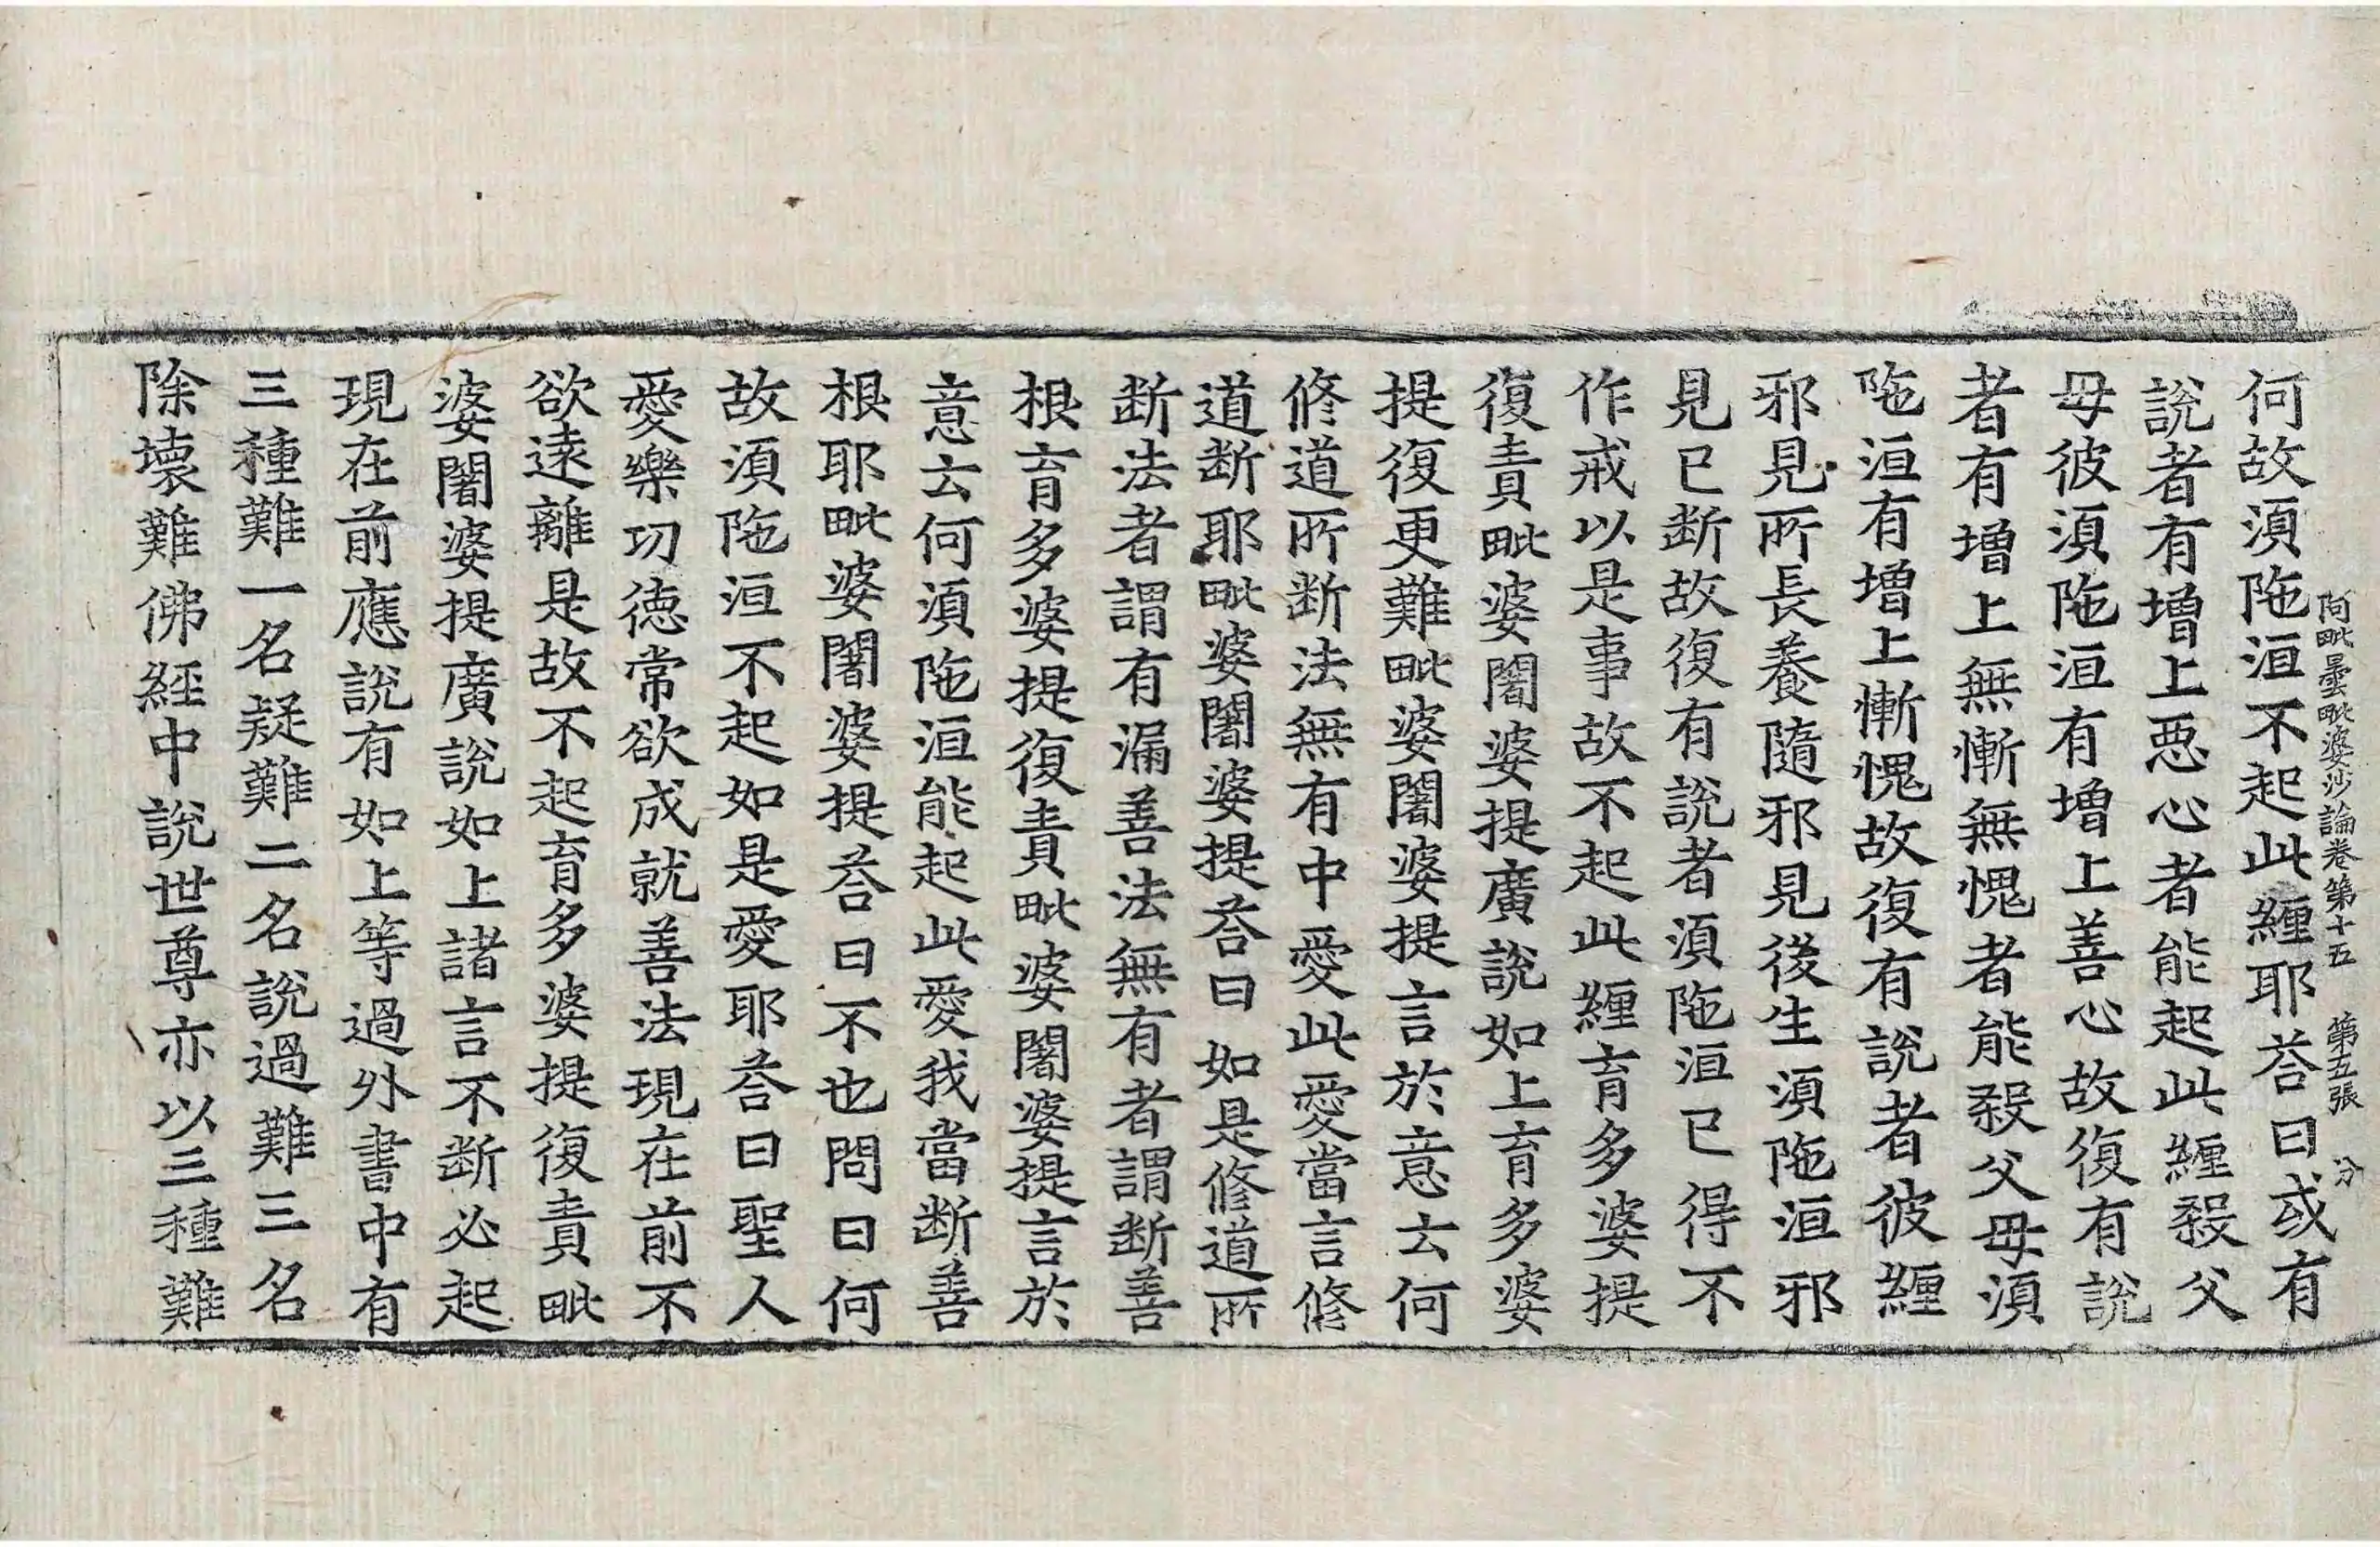 阿毗曇毗婆沙論卷第十五 第五張 分
何故須陁洹不起此纏耶荅曰或有
說者有增上惡心者能起此纏殺父
母彼須陁洹有增上善心故復有說
者有增上無慚無愧者能殺父母須
陁洹有增上慚愧故復有說者彼纏
邪見所長養隨邪見後生須陁洹邪
見已斷故復有說者須陁洹已得不
作戒以是事故不起此纏育多婆提
復責毗婆闍婆提廣說如上育多婆
提復更難毗婆闍婆提言於意云何
修道所斷法無有中愛此愛當言修
道斷耶毗婆闍婆提荅曰如是修道所
斷法者謂有漏善法無有者謂斷善
根育多婆提復責毗婆闍婆提言於
意云何須陁洹能起此愛我當斷善
根耶毗婆闍婆提荅曰不也問曰何
故須陁洹不起如是愛耶荅曰聖人
愛樂功德常欲成就善法現在前不
欲遠離是故不起育多婆提復責毗
婆闍婆提廣說如上諸言不斷必起
現在前應說有如上等過外書中有
三種難一名疑難二名說過難三名
除壞難佛經中說世尊亦以三種難